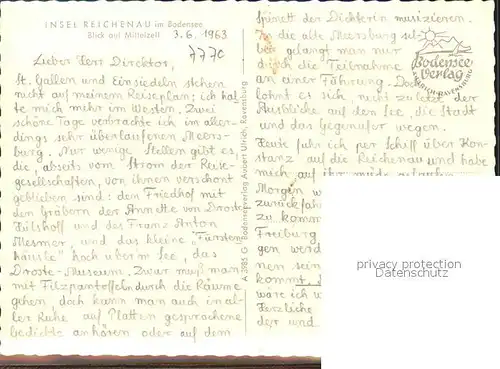 INSEL REICHENAU im Bodensee
Blick auf Mittelzell
3.6.1963
7770
Lieber Herr Direktor,
St. Gallen und Einsiedeln stehen
nicht auf meinem Reiseplan; ich hal-
te mich mehr im Westen. Zwei
schöne Tage verbrachte ich in aller-
dings sehr überlaufenen Meers-
burg. Nur wenige Stellen gibt es,
die, abseits vom Strom der Reise-
gesellschaften, von ihnen verschont
geblieben sind: dem Friedhof mit
den Gräbern der Annette von Droste
Hülshoff und des Franz Anton
Mesmer, und das kleine "Fürsten-
häusle" hoch überm See, das
Droste-Museum. Zwar muß man
mit Filzpantoffeln durch die Räume
gehen, doch kann man auch in al-
ler Ruhe auf Platten gesprochene
Gedichte anhören oder auf dem
A 3985 G Bodenseeverlag August Ulrich, Ravensburg
Spinett der Dichterin musizieren.
In die alte Meersburg sel-
ber gelangt man nur
durch die Teilnahme
an einer Führung. Doch
lohnt es sich, nicht zuletzt der
Ausblicke auf den See, die Stadt
und das Gegenufer wegen.
Heute fuhr ich per Schiff über Kon-
stanz auf die Reichenau und habe
mich auf ihr müde gelaufen.
Morgen w
zurückfah
zu komm
Freiburg
gen werd
nen sein
kommt.
wäre ich w
Herzliche
der und
Bodensee
Verlag
privacy protection
Datenschutz